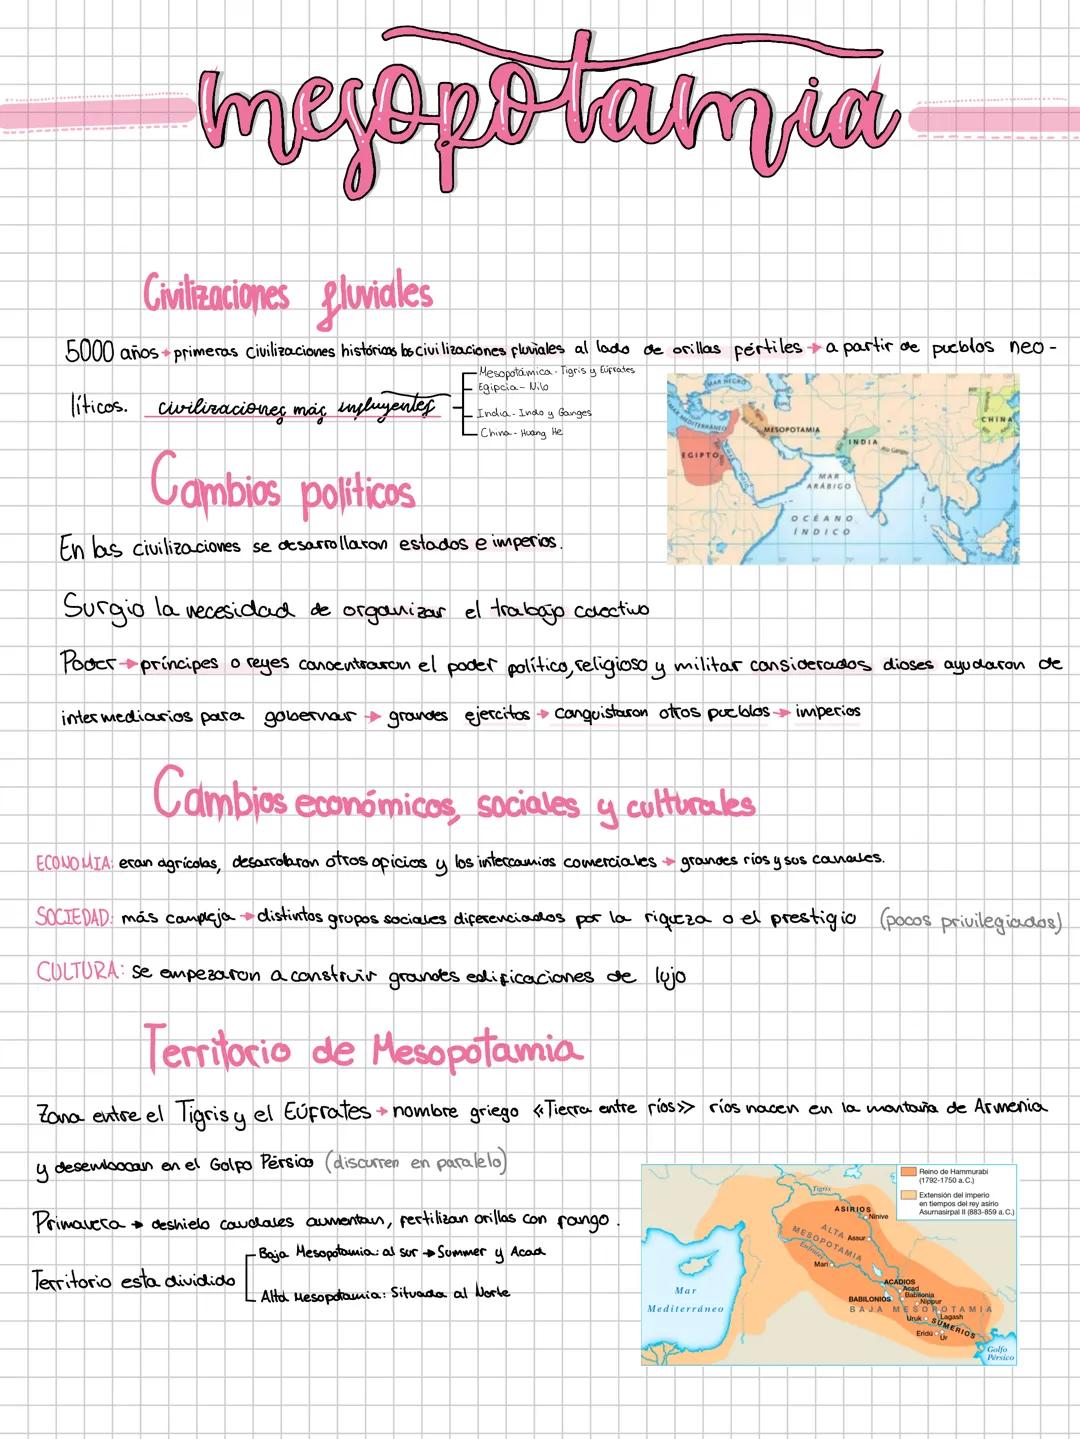 mesopotamia
Civilizaciones fluviales
5000 años → primeras civilizaciones históricas las civilizaciones fluviales al lado de orillas fértiles → a partir de pueblos neo-
líticos. civilizaciones más influyentes
Mesopotámica - Tigris y Eúfrates
Egipcia - Nilo
India - Indo y Ganges
China - Huang He
MAR NEGRO
MAR MEDITERRÁNEO
MESOPOTAMIA
EGIPTO
INDIA
CHINA
MAR
ARÁBIGO
OCÉANO
ÍNDICO
Cambios políticos
En las civilizaciones se desarrollaron estados e imperios.
Surgio la necesidad de organizar el trabajo colectivo
Poder → príncipes o reyes concentraron el poder político, religioso y militar considerados dioses ayudaron de
intermediarios para gobernar → grandes ejercitos → conquistaron otros pueblos → imperios
Cambios económicos, sociales y culturales
ECONOMIA: eran agrícolas, desarrolaron otros oficios y los intercamios comerciales → grandes ríos y sus canales.
SOCIEDAD: más compleja → distintos grupos sociales diferenciados por la riqueza o el prestigio (pocos privilegiados)
CULTURA: se empezaron a construir grandes edificaciones de lujo
Territorio de Mesopotamia
Zona entre el Tigris y el Eúfrates → nombre griego «Tierra entre ríos» ríos nacen en la montaña de Armenia
y desembocan en el Golfo Pérsico (discurren en paralelo)
Primavera → deshielo caudales aumentan, fertilizan orillas con fango.
Territorio esta dividido
Baja Mesopotamia: al sur → Summer y Acad
Alta Mesopotamia: Situada al Norte
Reino de Hammurabi
(1792-1750 a.C.)
Extensión del imperio
en tiempos del rey asirio
Asurnasirpal II (883-859 a.C.)
Tigris
ASIRIOS
Nínive
ALTA
MESOPOTAMIA
Assur
Éufrates
Mari
ACADIOS
Acad
Babilonia
BABILONIOS
Nippur
BAJA MESOPOTAMIA
Uruk
Lagash
SUMERIOS
Eridú
Ur
Mar
Mediterráneo
Golfo
Pérsico